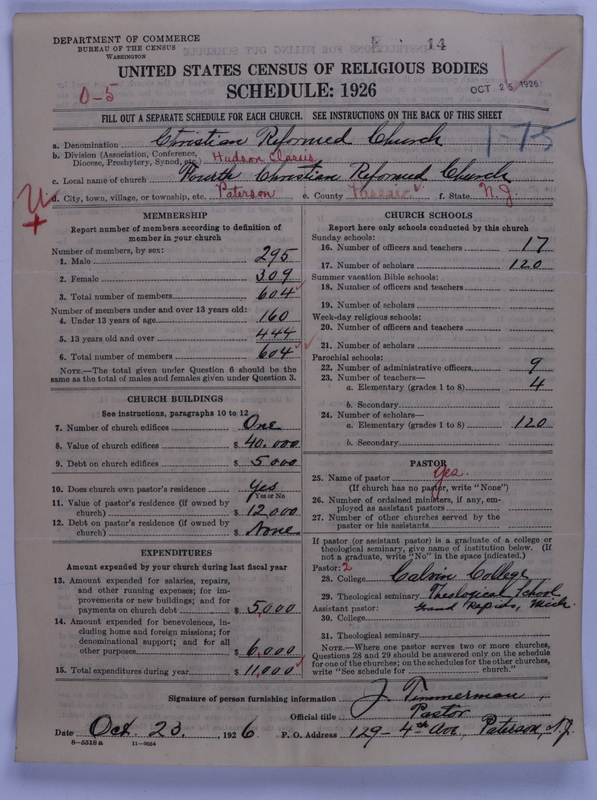 DEPARTMENT OF COMMERCE
BUREAU OF THE CENSUS
WASHINGTON
14
UNITED STATES CENSUS OF RELIGIOUS BODIES
SCHEDULE: 1926
OCT 25 1926
O-5
FILL OUT A SEPARATE SCHEDULE FOR EACH CHURCH. SEE INSTRUCTIONS ON THE BACK OF THIS SHEET
1-75
a. Denomination Christian Reformed Church
b. Division (Association, Conference, Diocese, Presbytery, Synod, etc.) Hudson Classis
c. Local name of church Fourth Christian Reformed Church
d. City, town, village, or township, etc. Paterson e. County Passaic f. State N.J.
MEMBERSHIP
Report number of members according to definition of
member in your church
Number of members, by sex:
1. Male 295
2. Female 309
3. Total number of members 604
Number of members under and over 13 years old:
4. Under 13 years of age 160
5. 13 years old and over 444
6. Total number of members 604
NOTE.—The total given under Question 6 should be the
same as the total of males and females given under Question 3.
CHURCH BUILDINGS
See instructions, paragraphs 10 to 12
7. Number of church edifices One
8. Value of church edifices $ 40,000
9. Debt on church edifices $ 5000
10. Does church own pastor's residence Yes
Yes or No
11. Value of pastor's residence (if owned by
church) $ 12,000
12. Debt on pastor's residence (if owned by
church) $ None
EXPENDITURES
Amount expended by your church during last fiscal year
13. Amount expended for salaries, repairs,
and other running expenses; for im-
provements or new buildings; and for
payments on church debt $ 5,000
14. Amount expended for benevolences, in-
cluding home and foreign missions; for
denominational support; and for all
other purposes $ 6,000
15. Total expenditures during year $ 11,000
CHURCH SCHOOLS
Report here only schools conducted by this church
Sunday schools:
16. Number of officers and teachers 17
17. Number of scholars 120
Summer vacation Bible schools:
18. Number of officers and teachers
19. Number of scholars
Week-day religious schools:
20. Number of officers and teachers
21. Number of scholars
Parochial schools:
22. Number of administrative officers 9
23. Number of teachers—
a. Elementary (grades 1 to 8) 4
b. Secondary
24. Number of scholars—
a. Elementary (grades 1 to 8) 120
b. Secondary
PASTOR
25. Name of pastor yes.
(If church has no pastor, write "None")
26. Number of ordained ministers, if any, em-
ployed as assistant pastors
27. Number of other churches served by the
pastor or his assistants
If pastor (or assistant pastor) is a graduate of a college or
theological seminary, give name of institution below. (If
not a graduate, write "No" in the space indicated.)
Pastor: 2
28. College Calvin College
29. Theological seminary Theological School
Assistant pastor: Grand Rapids, Mich.
30. College
31. Theological seminary
NOTE.—Where one pastor serves two or more churches,
Questions 28 and 29 should be answered only on the schedule
for one of the churches; on the schedules for the other churches,
write "See schedule for church."
Signature of person furnishing information J. Timmerman
Official title Pastor
Date Oct. 23, 1926. P. O. Address 129-4th Ave, Paterson, N.J.
8-5518 a 11-9034